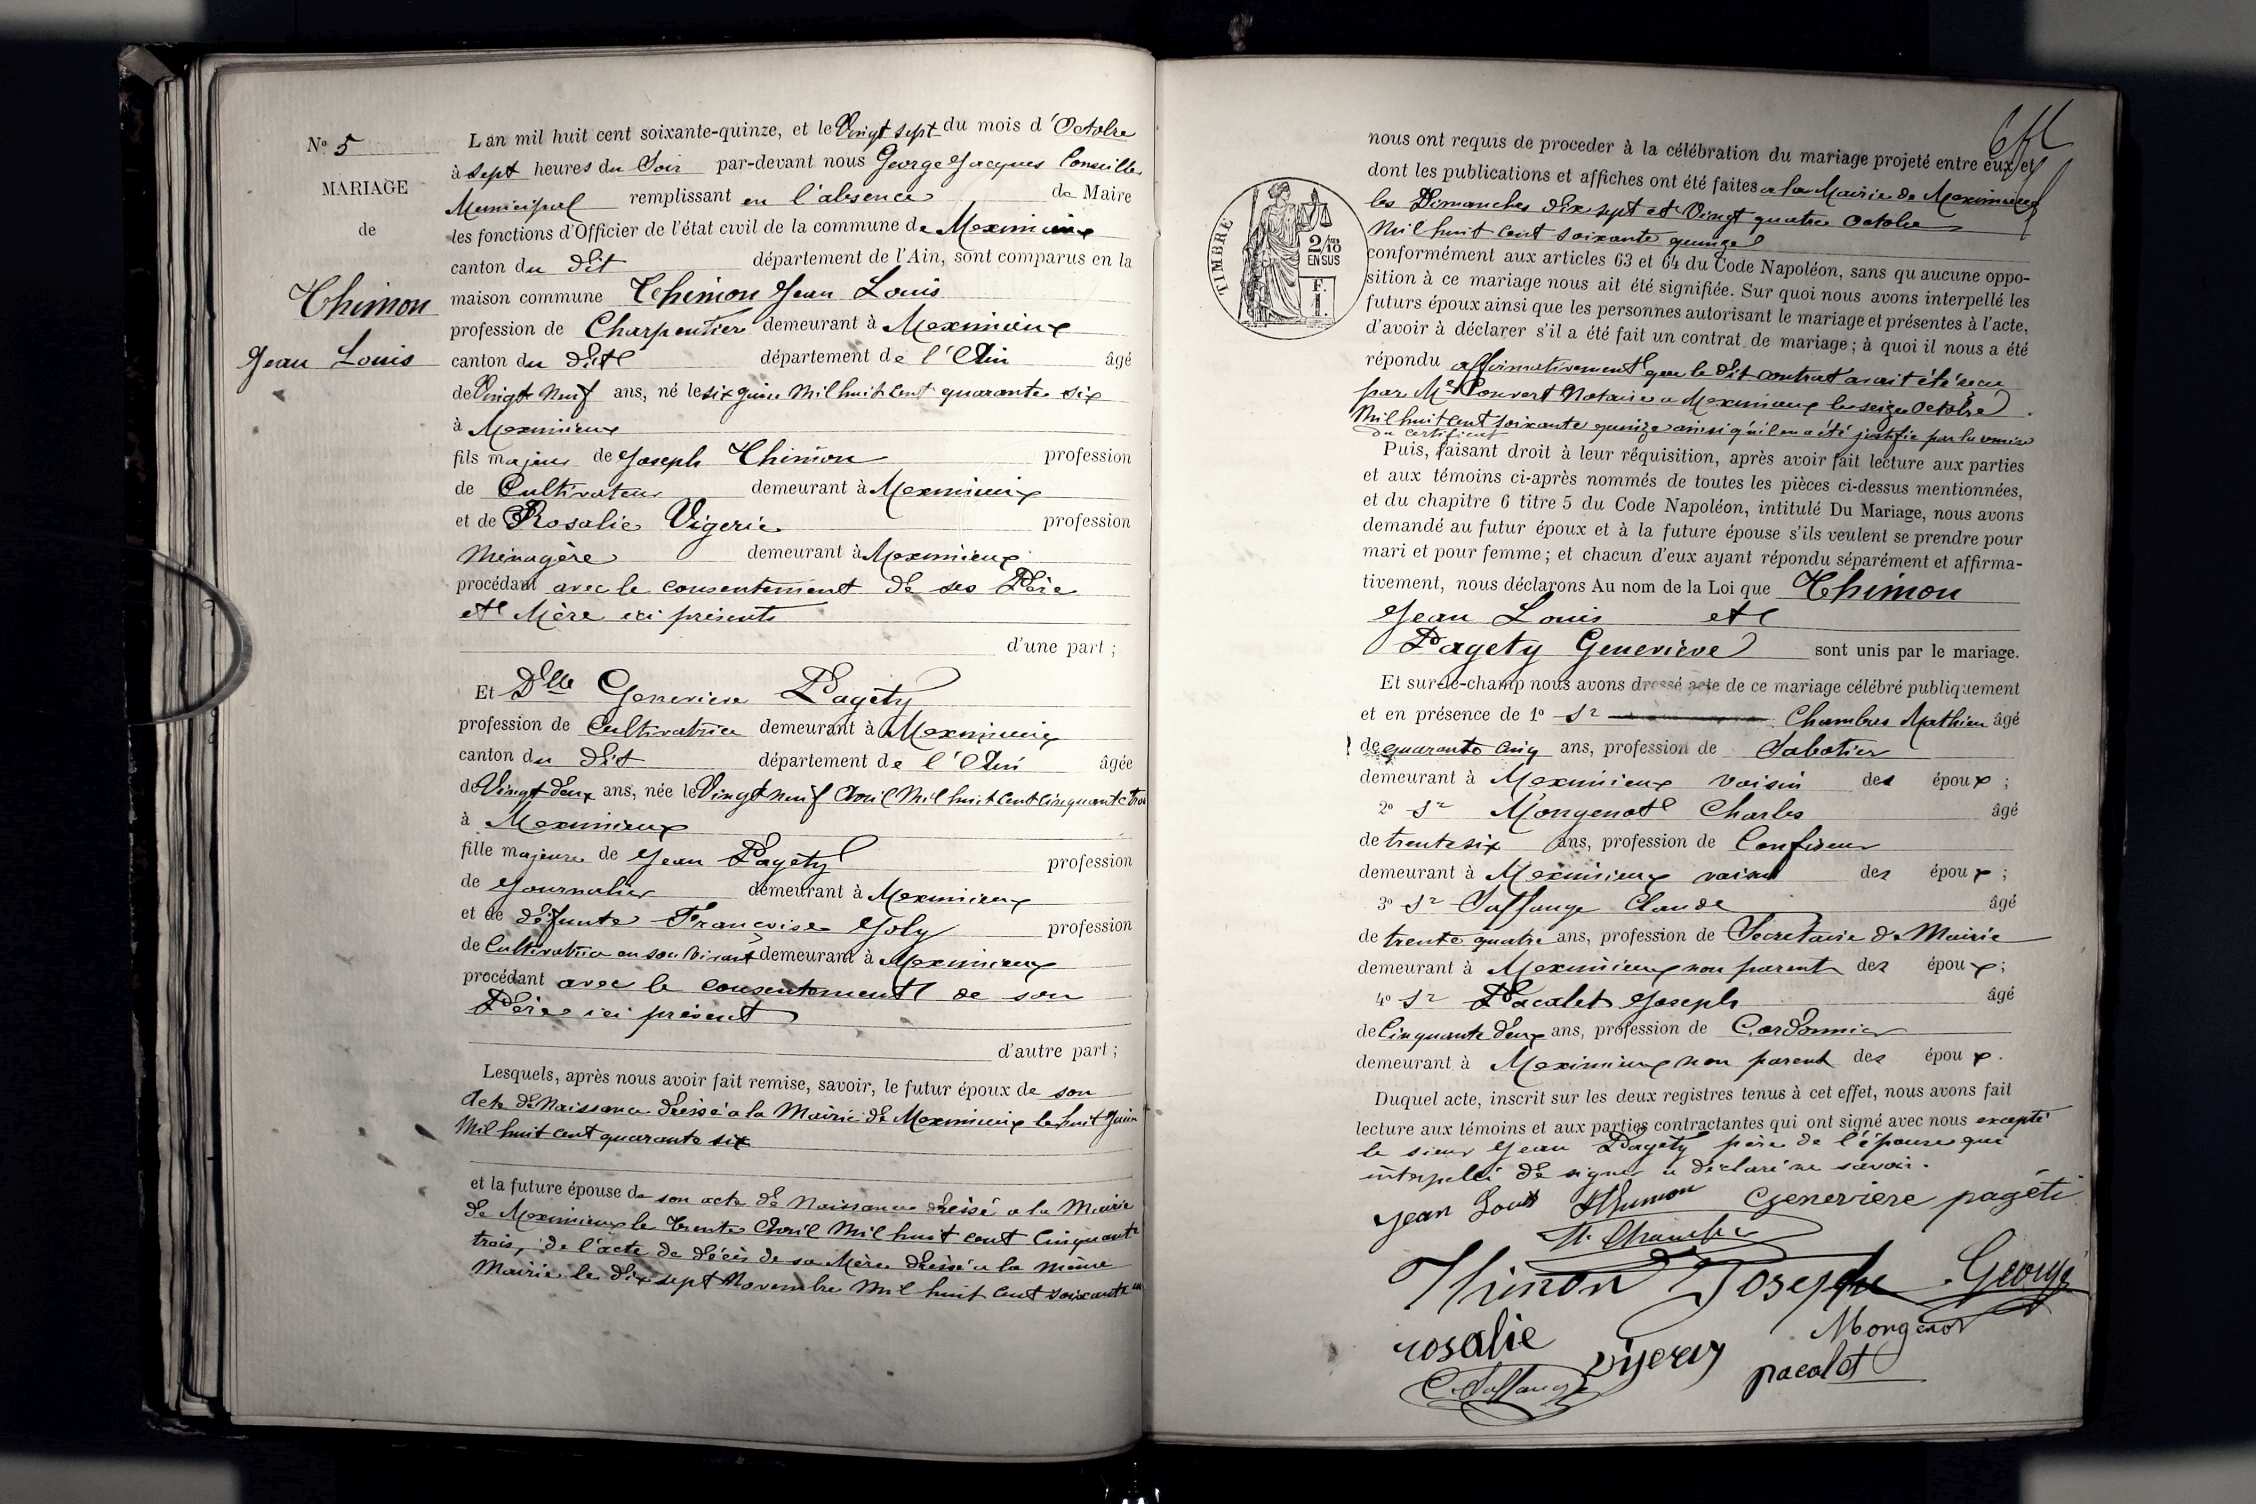 N° 5
MARIAGE
de
Thimon
Jean Louis
L'an mil huit cent soixante-quinze, et le Vingt sept du mois d'Octobre
à sept heures du Soir par-devant nous George Jacques Conseiller
Municipal remplissant en l'absence de Maire
les fonctions d'Officier de l'état civil de la commune de Meximieux
canton du dit département de l'Ain, sont comparus en la
maison commune Thimon Jean Louis
profession de Charpentier demeurant à Meximieux
canton du dit département de l'Ain âgé
de Vingt Neuf ans, né le six Juin Mil huit Cent quarante six
à Meximieux
fils majeur de Joseph Thimon profession
de Cultivateur demeurant à Meximieux
et de Rosalie Vigerie profession
Ménagère demeurant à Meximieux
procédant avec le consentement de ses Père
et Mère ici présents
d'une part ;
Et Dlle Genevieve Pagéty
profession de Cultivatrice demeurant à Meximieux
canton du dit département de l'Ain âgée
de Vingt deux ans, née le Vingt neuf Avril Mil huit Cent Cinquante trois
à Meximieux
fille majeure de Jean Pagéty profession
de Journalier demeurant à Meximieux
et de défunte Françoise Joly profession
de Cultivatrice en son Vivant demeurant à Meximieux
procédant avec le consentement de son
Père ici présent
d'autre part ;
Lesquels, après nous avoir fait remise, savoir, le futur époux de son
Acte de Naissance dressé a la Mairie de Meximieux le huit Juin
Mil huit cent quarante six
et la future épouse de son acte de Naissance dressé a la Mairie
de Meximieux le trente Avril Mil huit cent Cinquante
trois, de l'acte de décès de sa Mère dressé a la même
Mairie le dix sept Novembre Mil huit Cent soixante un
nous ont requis de proceder à la célébration du mariage projeté entre eux et
dont les publications et affiches ont été faites a la Mairie de Meximieux
les Dimanches dix sept et Vingt quatre Octobre
Mil huit Cent soixante quinze
TIMBRE
2/10
EN SUS
F.
1
conformément aux articles 63 et 64 du Code Napoléon, sans qu'aucune oppo-
sition à ce mariage nous ait été signifiée. Sur quoi nous avons interpellé les
futurs époux ainsi que les personnes autorisant le mariage et présentes à l'acte,
d'avoir à déclarer s'il a été fait un contrat de mariage ; à quoi il nous a été
répondu affirmativement que le dit contrat avait été reçu
par Me Convert Notaire a Meximieux le seize Octobre
Mil huit Cent soixante quinze ainsi qu'il en a été justifié par la remise
du certificat
Puis, faisant droit à leur réquisition, après avoir fait lecture aux parties
et aux témoins ci-après nommés de toutes les pièces ci-dessus mentionnées,
et du chapitre 6 titre 5 du Code Napoléon, intitulé Du Mariage, nous avons
demandé au futur époux et à la future épouse s'ils veulent se prendre pour
mari et pour femme ; et chacun d'eux ayant répondu séparément et affirma-
tivement, nous déclarons Au nom de la Loi que Thimon
Jean Louis et
Pagéty Genevieve sont unis par le mariage.
Et sur-le-champ nous avons dressé acte de ce mariage célébré publiquement
et en présence de 1° Sr Chambre Mathieu âgé
de quarante cinq ans, profession de Sabotier
demeurant à Meximieux voisin des époux ;
2° Sr Mongenot Charles âgé
de trente six ans, profession de Confiseur
demeurant à Meximieux voisin des époux ;
3° Sr Saffange Claude âgé
de trente quatre ans, profession de Secretaire de Mairie
demeurant à Meximieux non parent des époux ;
4° Sr Pacalet Joseph âgé
de Cinquante deux ans, profession de Cordonnier
demeurant à Meximieux non parent des époux.
Duquel acte, inscrit sur les deux registres tenus à cet effet, nous avons fait
lecture aux témoins et aux parties contractantes qui ont signé avec nous excepté
le sieur Jean Pagéty père de l'épouse qui
interpellé de signer a déclaré ne savoir.
Jean Louis Thimon Genevieve pagéti
Thimon Joseph George
rosalie vijery Mongenot
C. Saffange pacalet